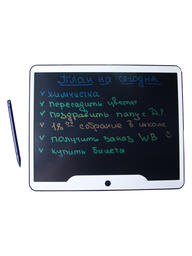 План на сегодня
химчистка
пересадить цветы
поздравить папу с Др!
18⁰⁰ собрание в школе
получить заказ WB
купить билеты